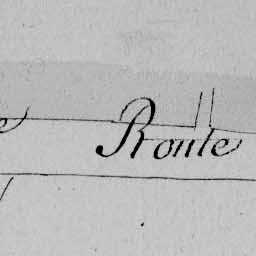 e
Route